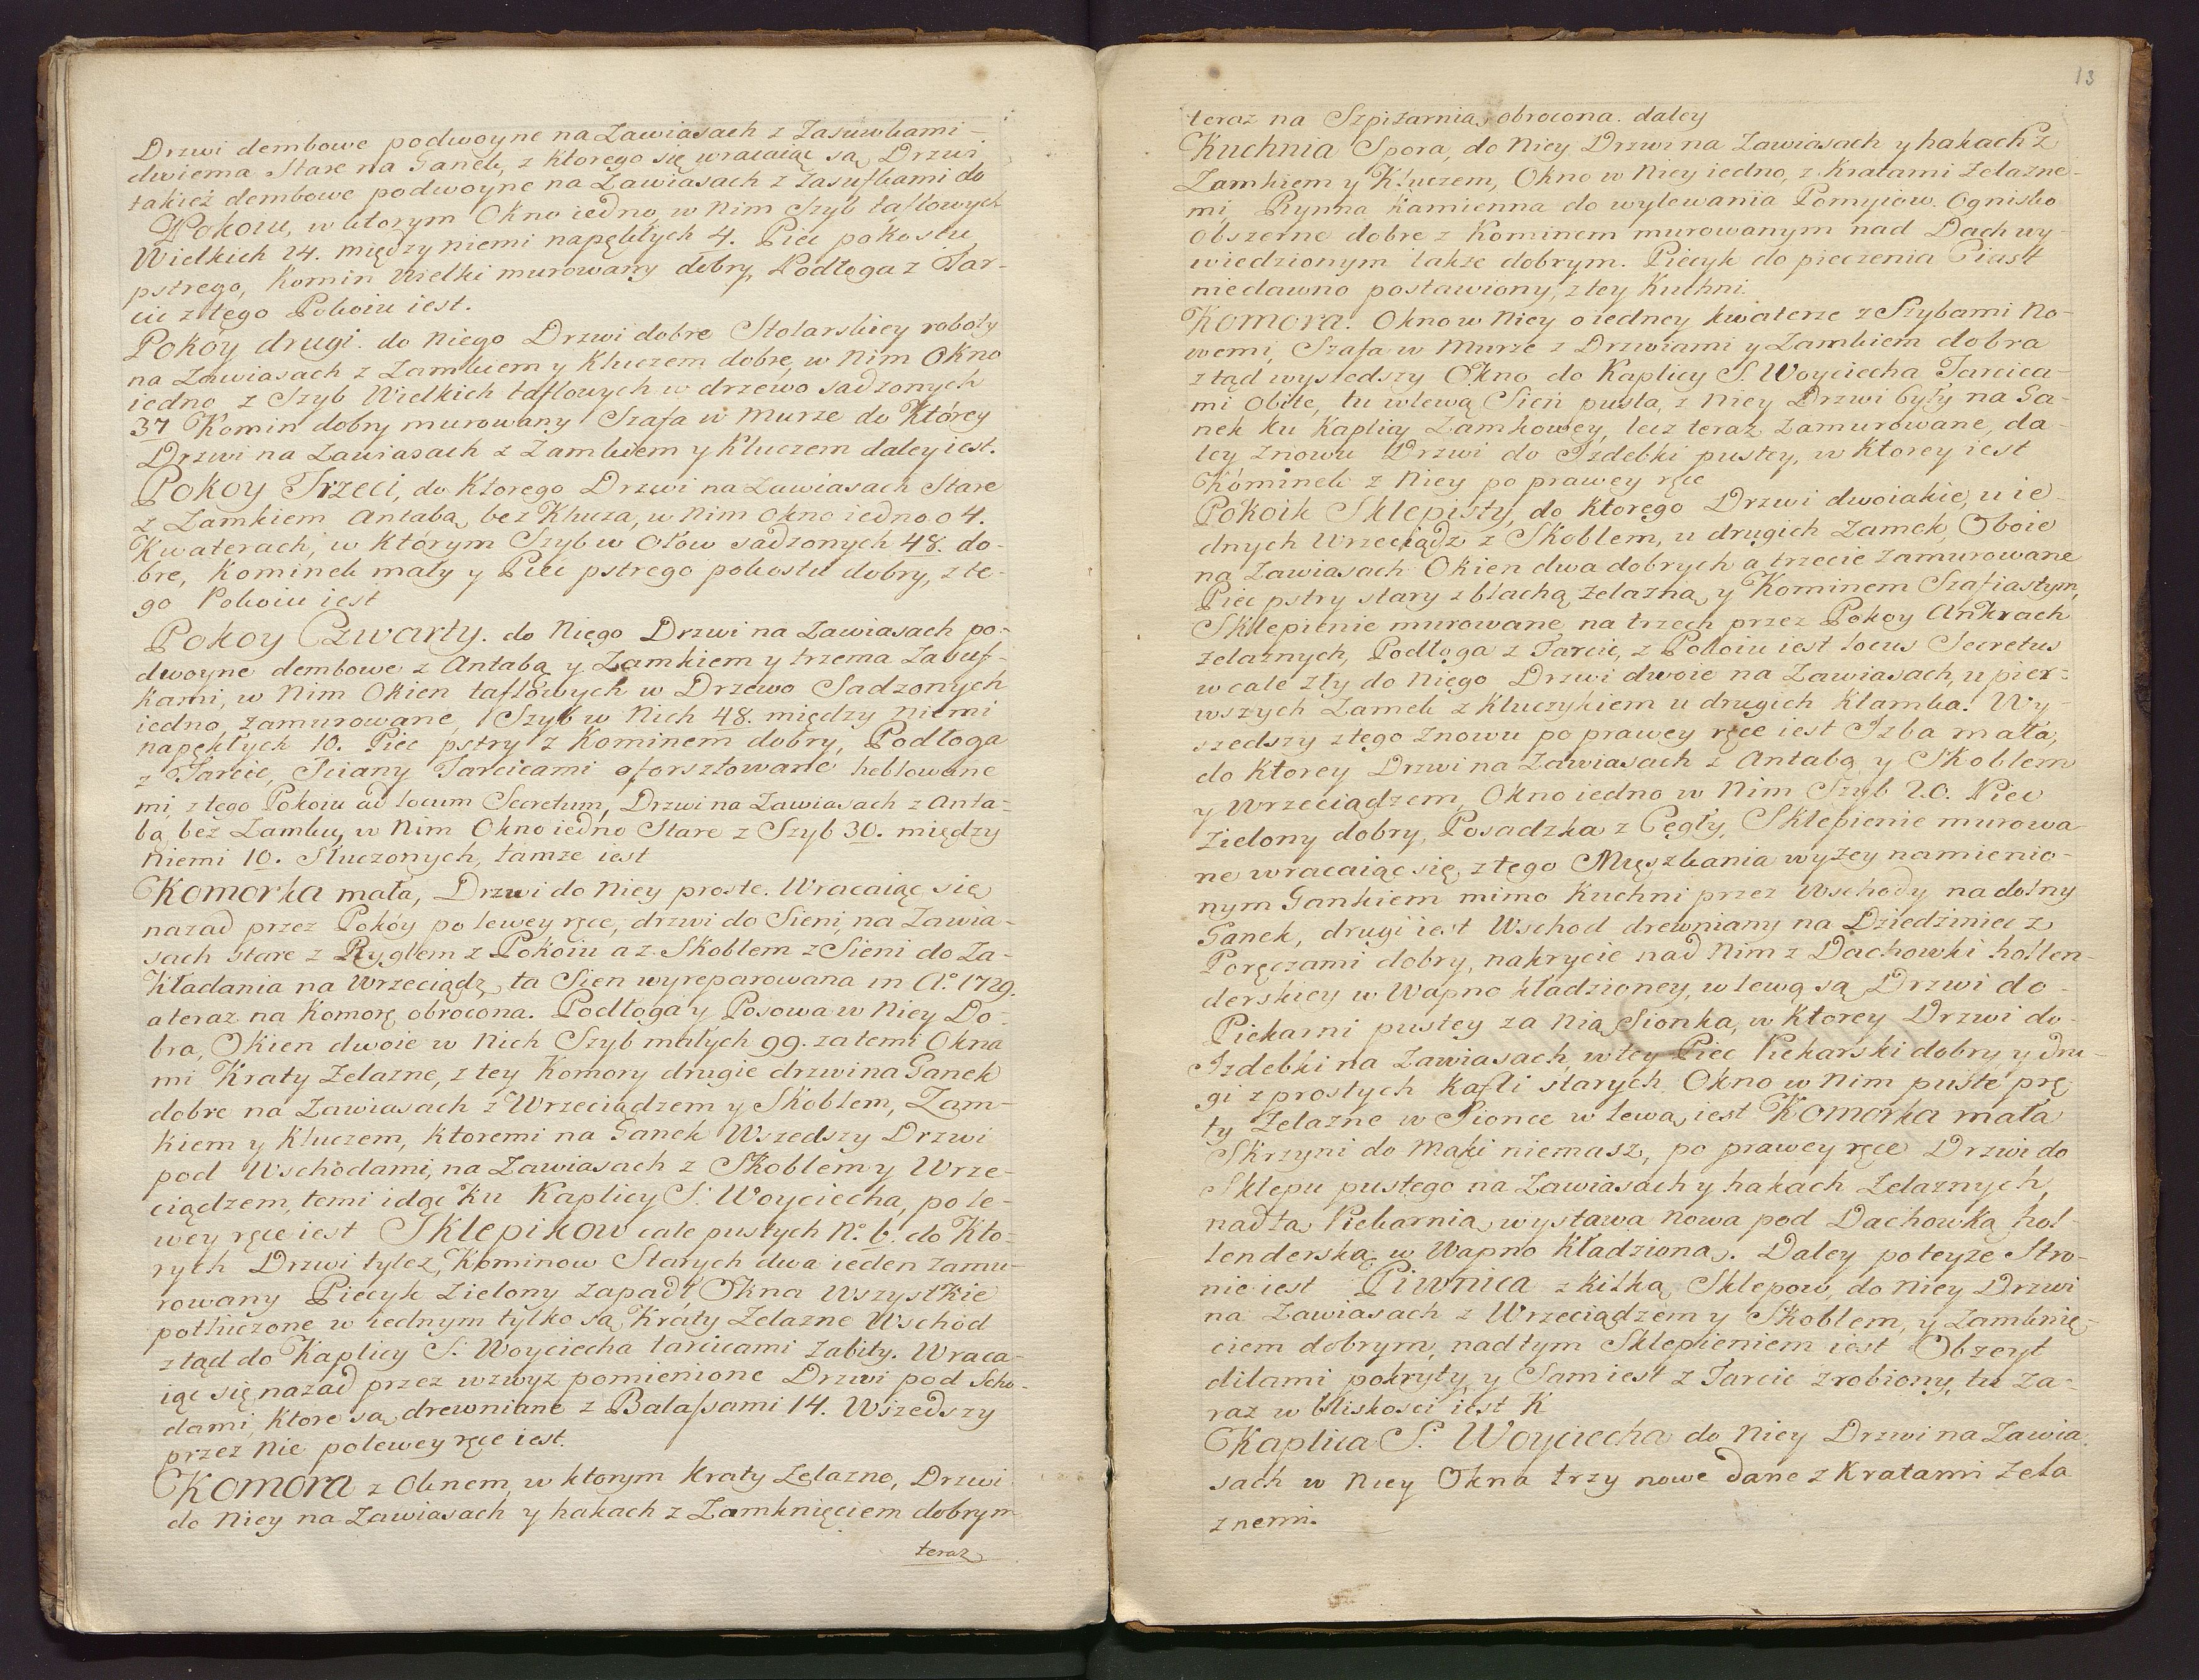 Drzwi dembowe podwoyne na Zawiasach z Zasuwkami
dwiema Stare na Ganek, z ktorego się wracaiąc są Drzwi
takież dembowe podwoyne na Zawiasach z Zasufkami do
Pokoiu, w ktorym Okno iedno, w Nim Szyb taflowych
Wielkich 24. między niemi napękłych 4. Piec pokostu
pstrego, Komin Wielki murowany dobry, Podłoga z Tar-
cic z tego Pokoiu iest.
Pokóy drugi. do Niego Drzwi dobre Stolarskiey roboty
na Zawiasach z Zamkiem y Kluczem dobre, w Nim Okno
iedno z Szyb Wielkich taflowych w drzewo sadzonych
37 Komin dobry murowany Szafa w Murze do Którey
Drzwi na Zawiasach z Zamkiem y Kluczem daley iest.
Pokoy Trzeci, do Ktorego Drzwi na Zawiasach Stare
z Zamkiem Antabą bez Klucza, w Nim Okno iedno o 4.
Kwaterach, w którym Szyb w Ołow sadzonych 48. do-
bre, Kominek mały y Piec pstrego pokostu dobry, z te-
go Pokoiu iest
Pokoy Czwarty. do Niego Drzwi na Zawiasach po-
dwoyne dembowe z Antabą y Zamkiem y trzema Zasuf-
kami, w Nim Okien taflowych w Drzewo Sadzonych
iedno zamurowane, Szyb w Nich 48. między niemi
napękłych 10. Piec pstry z Kominem dobry, Podłoga
z Tarcic, Sciany Tarcicami oforsztowane heblowane
mi, z tego Pokoiu ad locum Secretum, Drzwi na Zawiasach z Anta-
bą bez Zamku, w Nim Okno iedno Stare z Szyb 30. między
Niemi 10. Stuczonych, tamze iest
Komorka mała, Drzwi do Niey proste. Wracaiąc się
nazad przez Pokóy po lewey ręce, drzwi do Sieni, na Zawia-
sach stare z Ryglem z Pokoiu a z Skoblem z Sieni do Za-
Kładania na Wrzeciądz, ta Sien wyreparowana in A° 1729.
a teraz na Komorę obrocona. Podłoga y Posowa w Niey Do-
bra, Okien dwoie w Nich Szyb małych 99. za temi Okna
mi Kraty Żelazne, z tey Komory drugie drzwi na Ganek
dobre na Zawiasach z Wrzeciądzem y Skoblem, Zam-
kiem y Kluczem, Ktoremi na Ganek Wszedszy Drzwi
pod Wschodami, na Zawiasach z Skoblem y Wrze-
ciądzem, temi idąc Ku Kaplicy S. Woyciecha, po le-
wey ręce iest Sklepikow cale pustych N° 6. do Kto-
rych Drzwi tylez, Kominow Starych dwa ieden zamu-
rowany Piecyk Zielony zapadł, Okna Wszystkie
potłuczone w iednym tylko są Kraty Żelazne Wschod
z tąd do Kaplicy S. Woyciecha tarcicami zabity. Wraca-
iąc się nazad przez wzwyz pomienione Drzwi pod Scho-
dami, Ktore są drewniane z Balassami 14. Wszedszy
przez Nie po lewey ręce iest.
Komora z Oknem, w ktorym Kraty Żelazne, Drzwi
do Niey na Zawiasach y hakach z Zamknięciem dobrym
teraz
13
teraz na Szpiżarnią obrocona. daley
Kuchnia Spora, do Niey Drzwi na Zawiasach y hakach z
Zamkiem y Kluczem, Okno w Niey iedno, z Kratami Żelazne-
mi, Rynna Kamienna do wylewania Pomyiow. Ognisko
Obszerne dobre z Kominem murowanym nad Dach wy-
wiedzionym także dobrym. Piecyk do pieczenia Ciast
niedawno postawiony, z tey Kuchni.
Komora. Okno w Niey o iedney kwaterze z Szybami No-
wemi, Szafa w Murze z Drzwiami y Zamkiem dobra
z tąd wyszedszy Okno do Kaplicy S. Woyciecha Tarcica-
mi Obite, tu wlewą Sień pusta, z Niey Drzwi były na Ga-
nek ku Kaplicy Zamkowey, lecz teraz zamurowane, da-
ley znowu Drzwi do Izdebki pustey, w Ktorey iest
Kominek z Niey po prawey ręce
Pokoik Sklepisty, do Ktorego Drzwi dwoiakie, u ie-
dnych Wrzeciądz z Skoblem, u drugich Zamek, Oboie
na Zawiasach Okien dwa dobrych a trzecie zamurowane
Piec pstry stary z blachą żelazną y Kominem Szafiastym,
Sklepienie murowane na trzech przez Pokoy Ankrach
żelaznych, Podłoga z Tarcic, z Pokoiu iest locus Secretus
w cale zły do Niego Drzwi dwoie na Zawiasach, u pier-
wszych Zamek z Kluczykiem u drugich Klamka. Wy-
szedszy z tego znowu po prawey ręce iest Izba mała,
do Ktorey Drzwi na Zawiasach z Antabą y Skoblem
y Wrzeciądzem, Okno iedno w Nim Szyb 20. Piec
Zielony dobry, Posadzka z Cegły, Sklepienie murowa-
ne wracaiąc się z tego Męszkania wyżey namienio-
nym Gankiem mimo Kuchni przez Wschody na dolny
Ganek, drugi iest Wschod drewniany na Dziedziniec z
Poręczami dobry, nakrycie nad Nim z Dachowki hollen-
derskiey w Wapno kładzioney, w lewą są Drzwi do
Piekarni pustey za Nią Sionka, w Ktorey Drzwi do
Izdebki na Zawiasach, w tey Piec Piekarski dobry y dru-
gi z prostych Kafli starych Okno w Nim puste prę
ty Żelazne w Sionce w lewą iest Komorka mała
Skrzyni do Mąki niemasz, po prawey ręce Drzwi do
Sklepu pustego na Zawiasach y hakach Żelaznych,
nad tą Piekarnią wystawa Nowa pod Dachowką hol-
lenderską w Wapno Kładzioną. Daley po teyze Stro-
nie iest Piwnica z kilką Sklepow, do Niey Drzwi
na Zawiasach z Wrzeciądzem y Skoblem, y Zamknię-
ciem dobrym, nad tym Sklepieniem iest Obzeyt
dilami pokryty, y Sam iest z Tarcic zrobiony, tu za-
raz w bliskości iest K
Kaplica S. Woyciecha do Niey Drzwi na Zawia
sach w Niey Okna trzy nowe dane z Kratami żela
znemi.